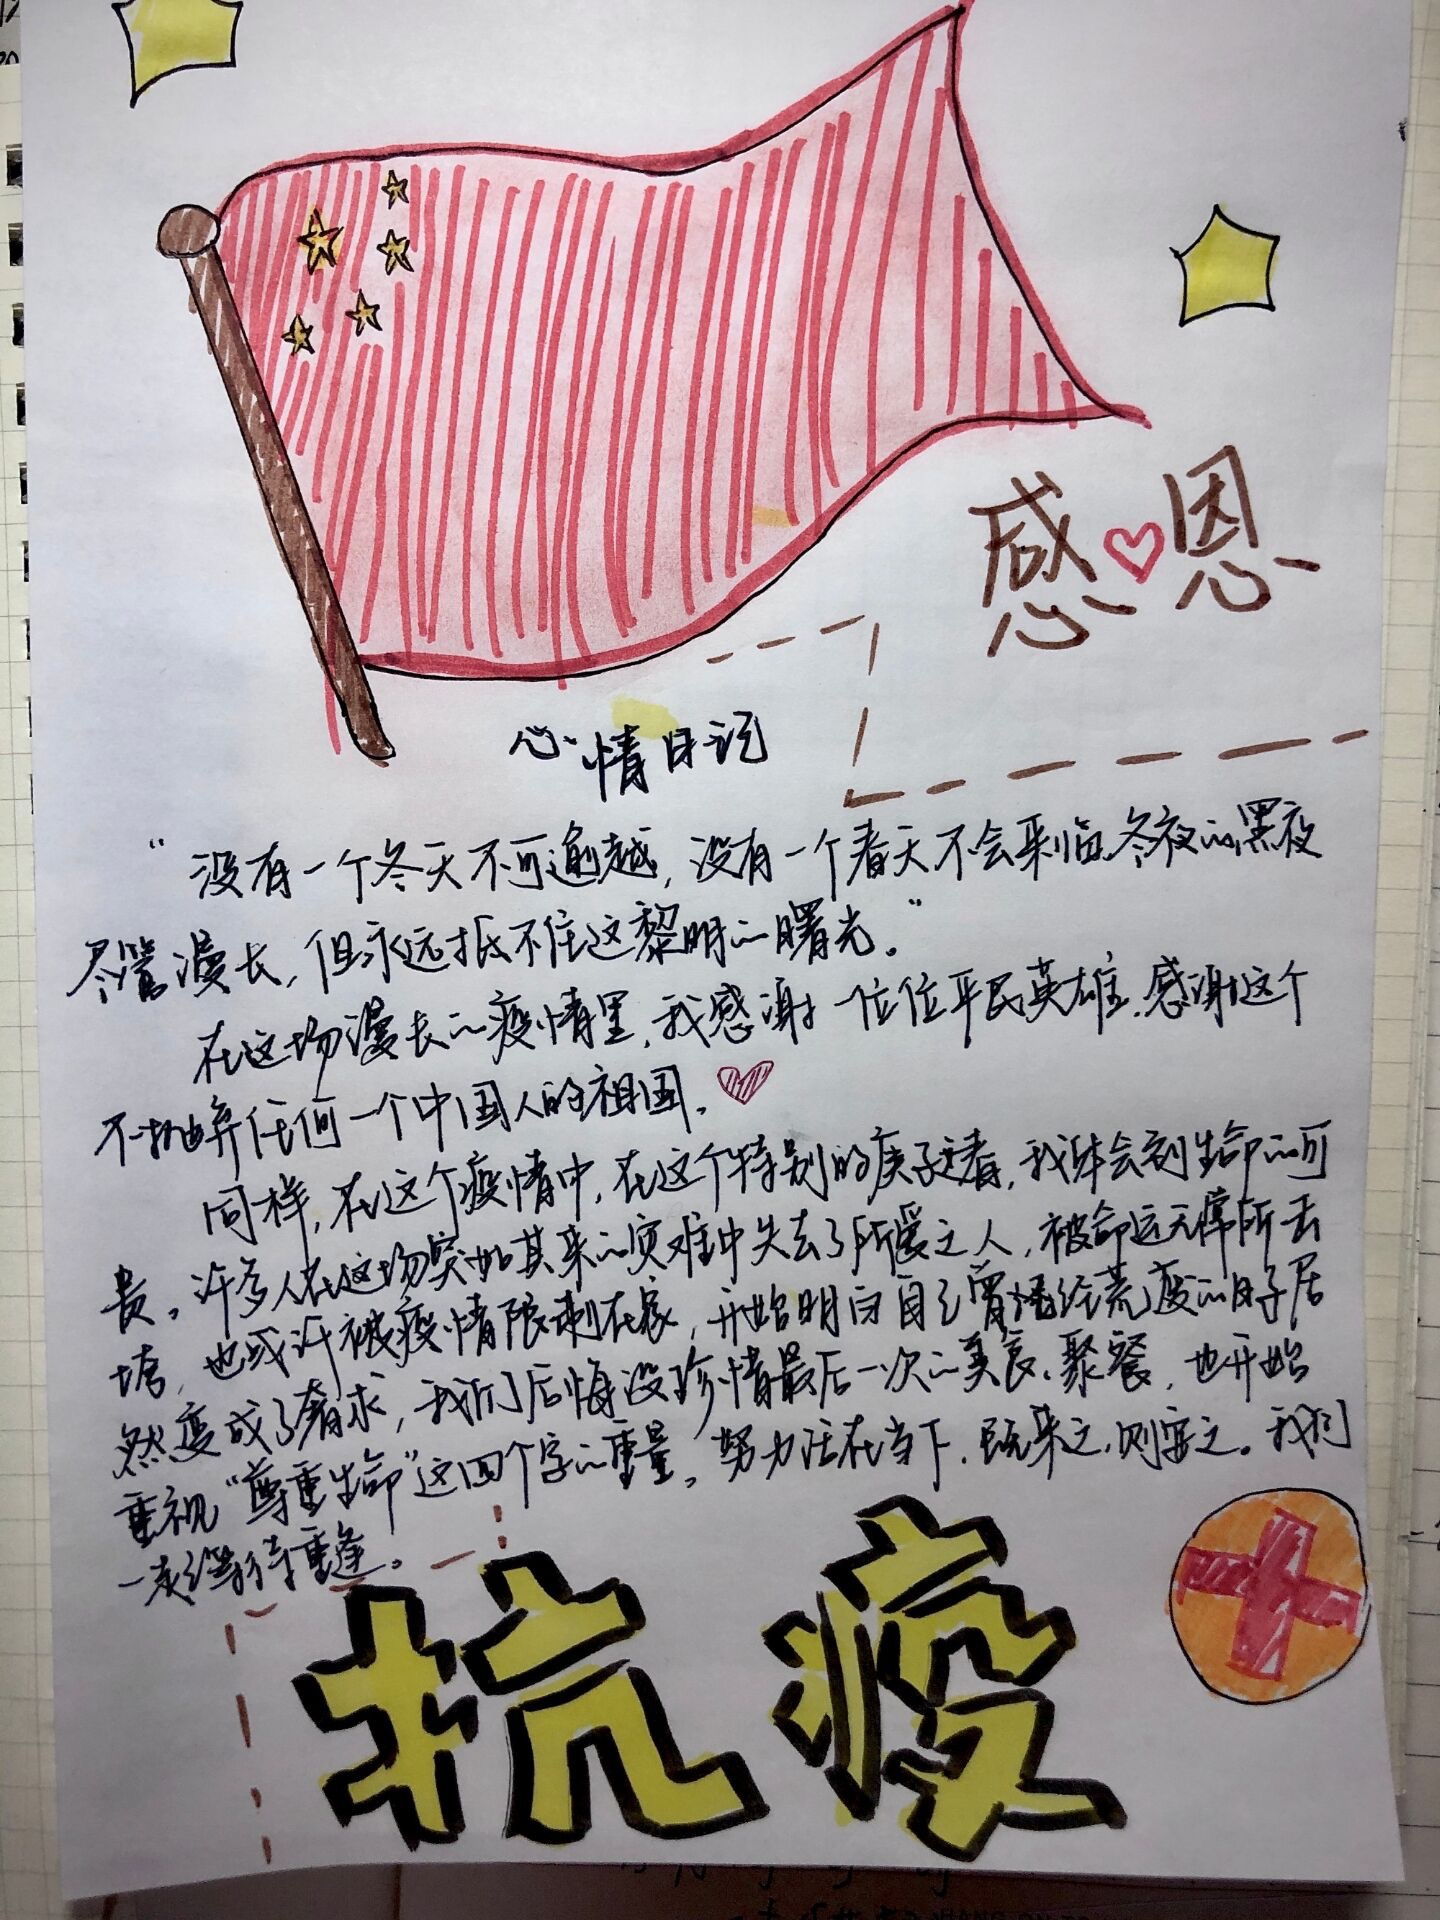 感恩
心情日记
“没有一个冬天不可逾越，没有一个春天不会来临.冬夜的黑夜
尽管漫长，但永远抵不住这黎明的曙光。”
在这场漫长的疫情里，我感谢一位位平民英雄.感谢这个
不抛弃任何一个中国人的祖国.
同样，在这个疫情中，在这个特别的庚子春，我体会到生命的可
贵。许多人在这场突如其来的灾难中失去了所爱之人，被命运无常所击
垮，也或许被疫情限制在家，开始明白自己曾悟经荒废的日子居
然变成了奢求，我们后悔没珍惜最后一次的美食、聚餐，也开始
重视“尊重生命”这四个字的重量。努力活在当下.既来之，则安之。我们
一起等待重逢。
抗疫